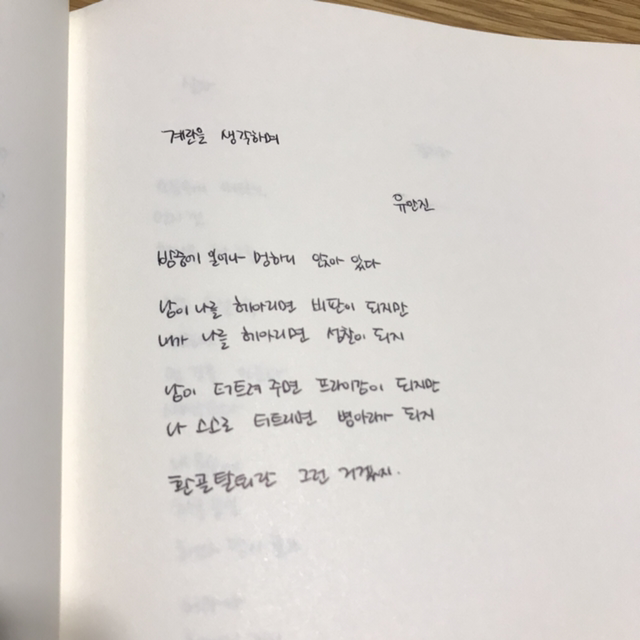 계란을 생각하며
유안진
밤중에 일어나 멍하니 앉아 있다
남이 나를 헤아리면 비판이 되지만
내가 나를 헤아리면 성찰이 되지
남이 터트려 주면 프라이감이 되지만
나 스스로 터트리면 병아리가 되지
환골탈퇴란 그런 거겠지.